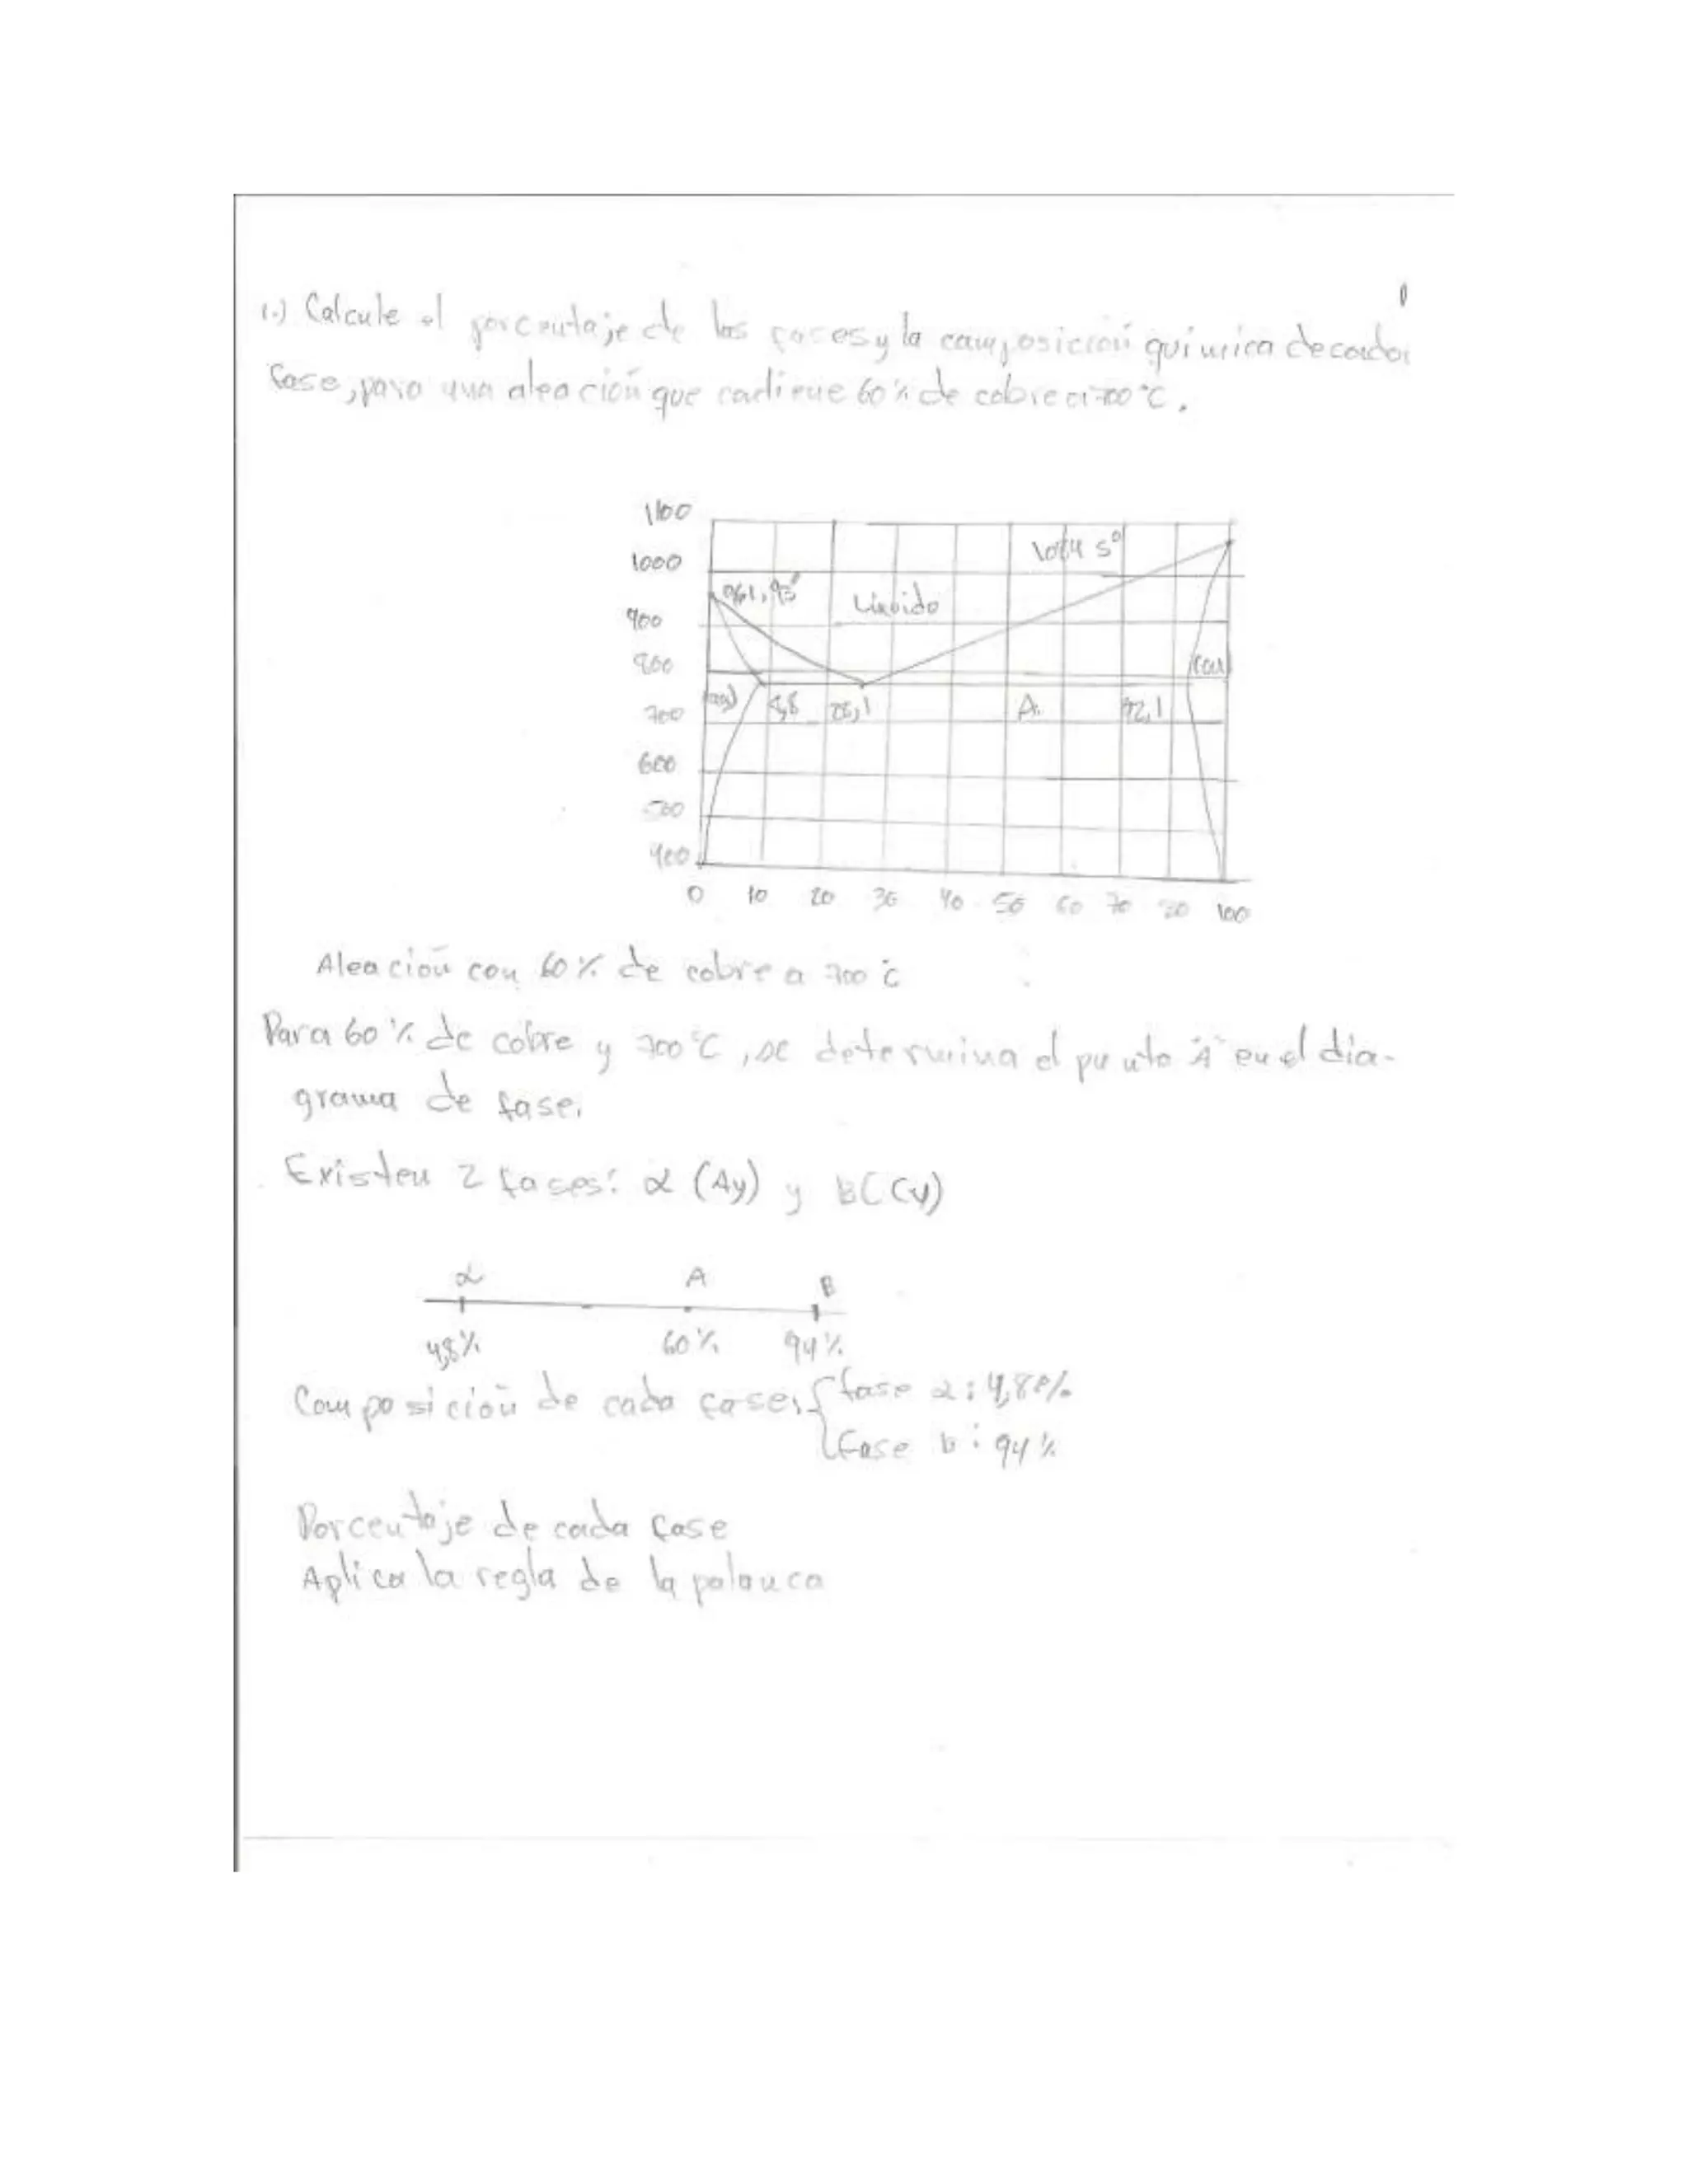 1.) Calcule el porcentaje de las fases y la composición química de cada
fase, para una aleación que contiene 60% de cobre a 700 °C.
1100
1000
900
800
700
600
500
400
961,93°
Líquido
1084 5°
(Cu)
(ag)
8,8
28,1
A.
92,1
0 10 20 30 40 50 60 70 80 100
Aleación con 60% de cobre a 700 °C
Para 60% de cobre y 700 °C, se determina el punto "A" en el dia-
grama de fase.
Existen 2 fases: α (Ag) y B (Cu)
α A B
4,8% 60% 94%
Composición de cada fase. { fase α: 4,8%
fase b: 94%
Porcentaje de cada fase
Aplica la regla de la palanca